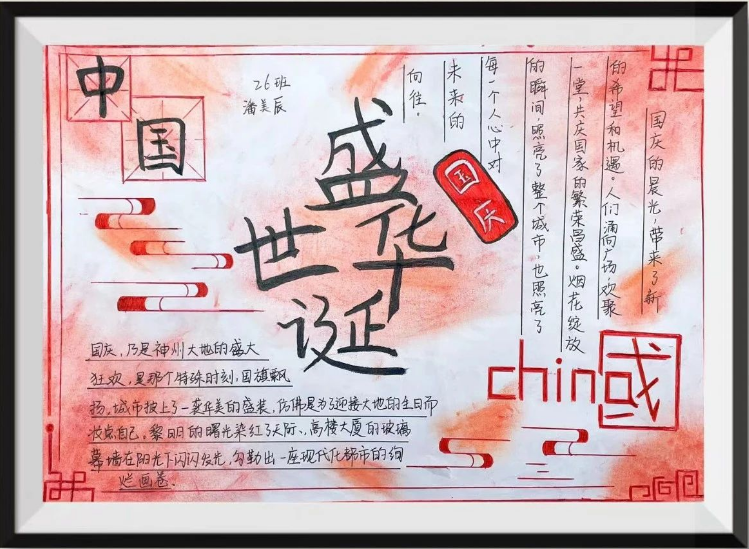 中
国
26班
潘美辰
盛
世华
诞
国庆
国庆的晨光，带来了新
的希望和机遇。人们涌向广场，欢聚
一堂，共庆国家的繁荣昌盛。烟花绽放
的瞬间，照亮了整个城市，也照亮了
每一个人心中对
未来的
向往。
国庆，乃是神州大地的盛大
狂欢，是那个特殊时刻，国旗飘
扬，城市披上了一袭华美的盛装，仿佛是为了迎接大地的生日而
妆点自己，黎明的曙光染红了天际、高楼大厦的玻璃
幕墙在阳光下闪闪发光，勾勒出一座现代化都市的绚
烂画卷。
china国